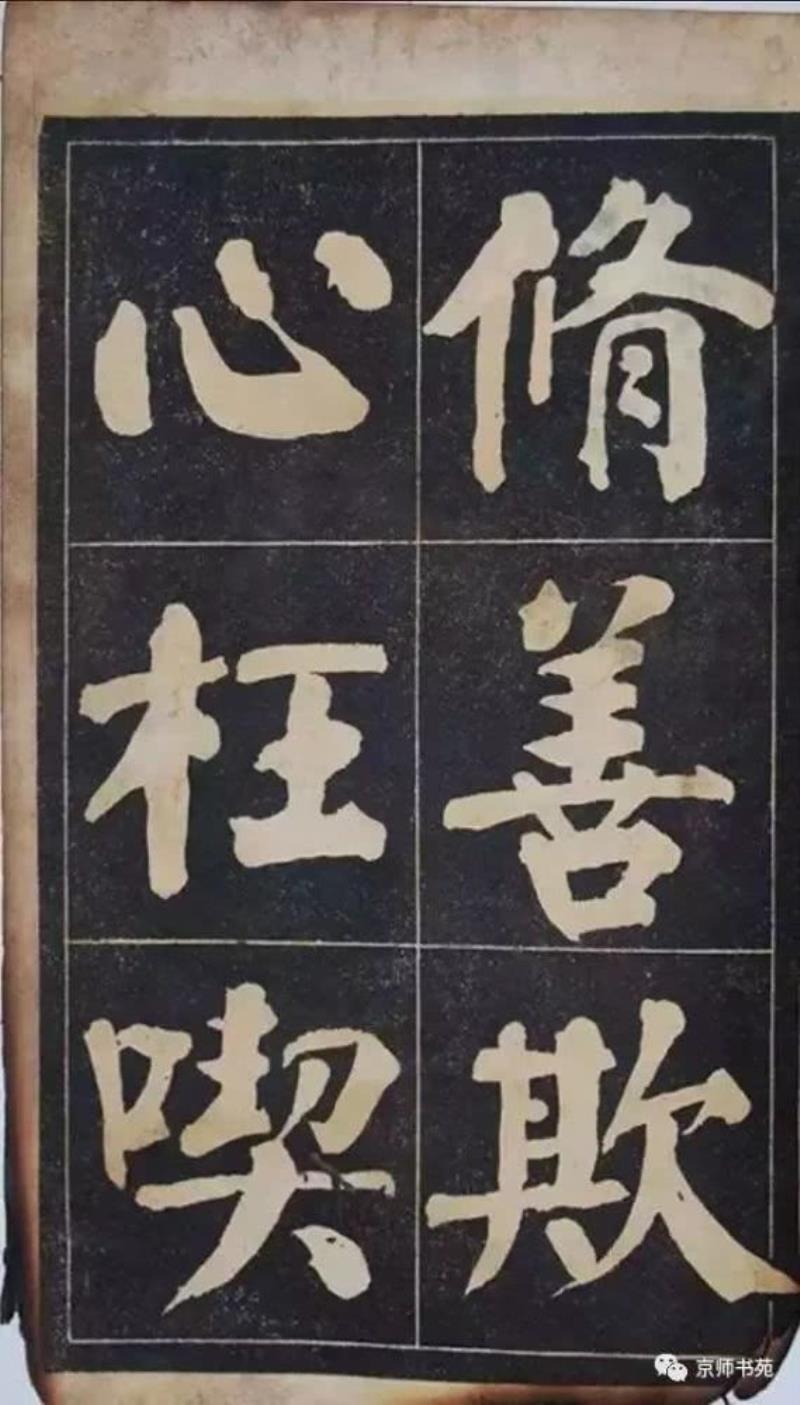 脩善欺
心枉喫
京师书苑